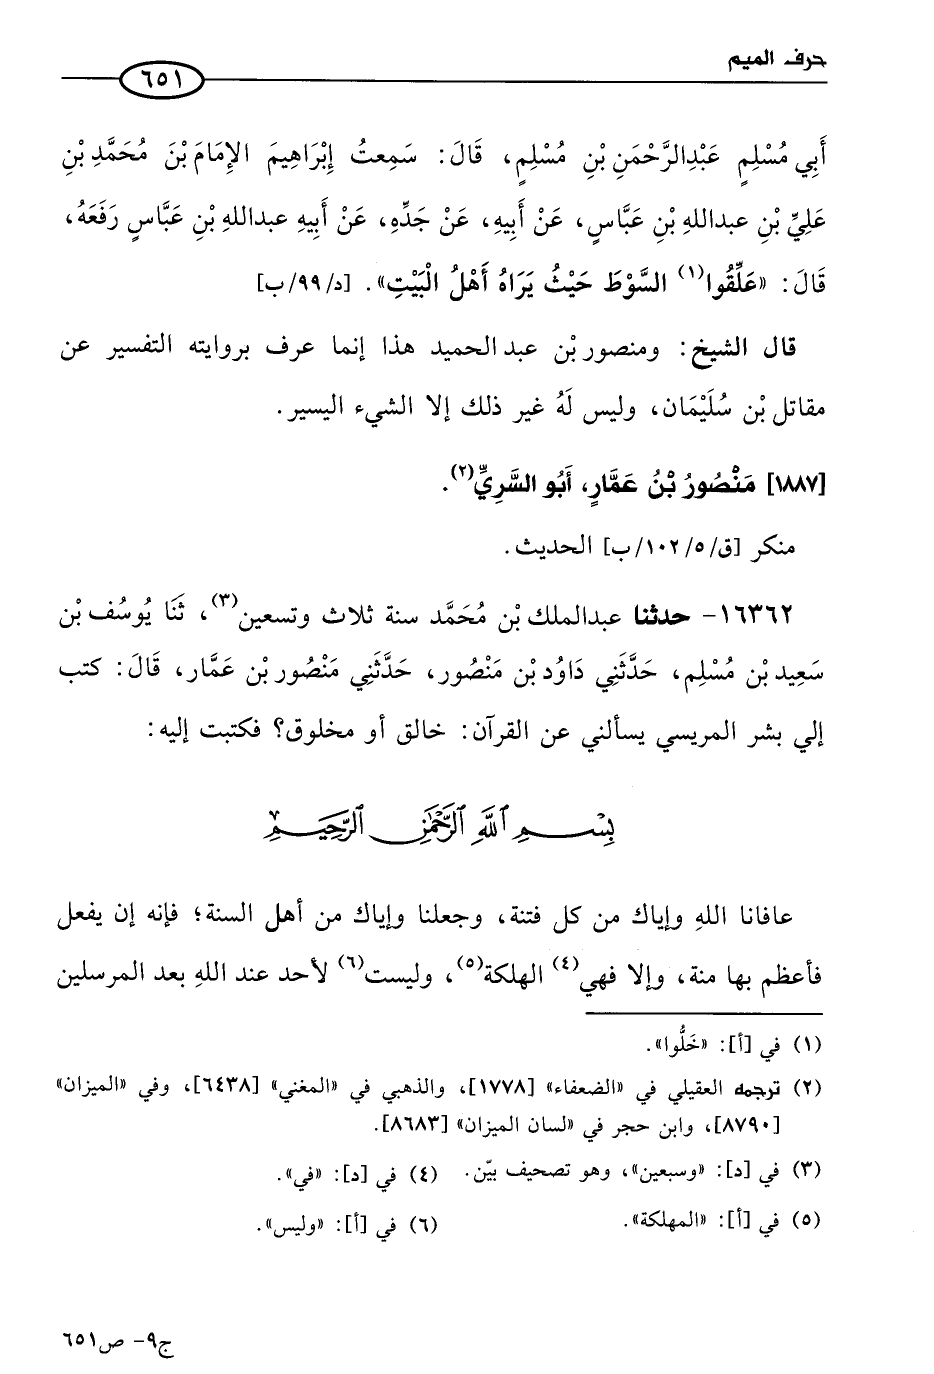 حرف الميم
٦٥١
أَبِي مُسْلِمٍ عَبْدِالرَّحْمَنِ بْنِ مُسْلِمٍ، قَالَ: سَمِعتُ إِبْرَاهِيمَ الإِمَامَ بْنَ مُحَمَّدِ بْنِ
عَلِيِّ بْنِ عبدالله بْنِ عَبَّاسٍ، عَنْ أَبِيهِ، عَنْ جَدِّهِ، عَنْ أَبِيهِ عبدالله بْنِ عَبَّاسٍ رَفَعَهُ،
قَالَ: «عَلِّقُوا(١) السَّوْطَ حَيْثُ يَرَاهُ أَهْلُ الْبَيْتِ». [د/٩٩/ب]
قال الشيخ: ومنصور بْن عبد الحميد هذا إنما عرف بروايته التفسير عن
مقاتل بْن سُلَيْمَان، وليس لَهُ غير ذلك إلا الشيء اليسير.
[١٨٨٧] مَنْصُورُ بْنُ عَمَّارٍ، أَبُو السَّرِيِّ(٢).
منكر [ق/٥/١٠٢/ب] الحديث.
١٦٣٦٢- حدثنا عبدالملك بْن مُحَمَّد سنة ثلاث وتسعين(٣)، ثَنَا يُوسُف بْن
سَعِيد بْن مُسْلِم، حَدَّثَنِي دَاوُد بْن مَنْصُور، حَدَّثَنِي مَنْصُور بْن عَمَّار، قَالَ: كتب
إلي بشر المريسي يسألني عن القرآن: خالق أو مخلوق؟ فكتبت إليه:
بِسْمِ ٱللَّهِ ٱلرَّحْمَٰنِ ٱلرَّحِيمِ
عافانا الله وإياك من كل فتنة، وجعلنا وإياك من أهل السنة؛ فإنه إن يفعل
فأعظم بها منة، وإلا فهي(٤) الهلكة(٥)، وليست(٦) لأحد عند الله بعد المرسلين
(١) في [أ]: «خَلُّوا».
(٢) ترجمه العقيلي في «الضعفاء» [١٧٧٨]، والذهبي في «المغني» [٦٤٣٨]، وفي «الميزان»
[٨٧٩٠]، وابن حجر في «لسان الميزان» [٨٦٨٣].
(٣) في [د]: «وسبعين»، وهو تصحيف بيّن. (٤) في [د]: «في».
(٥) في [أ]: «المهلكة». (٦) في [أ]: «وليس».
ج٩- ص٦٥١